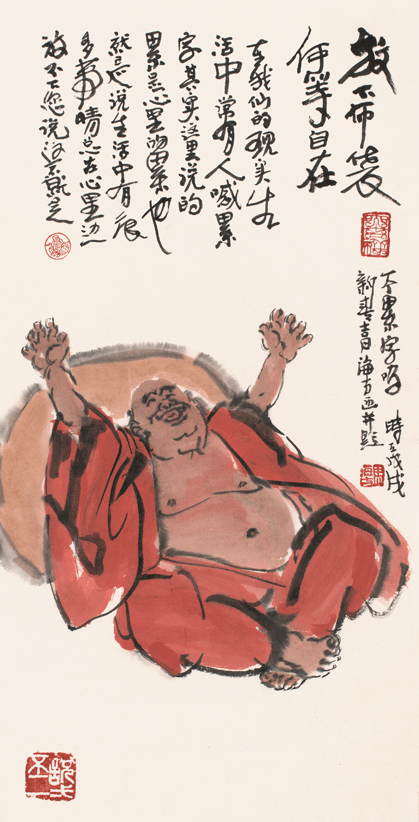 放下布袋
何等自在
在我们的现实生
活中常有人喊累
字其实这里说的
累是心里的累也
就是说生活中有很
多事情总在心里边
放不下您说这不就是
个累字吗 時在戊戌
新春吉日海方画并题